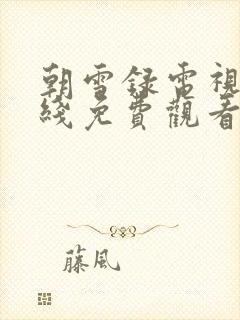 朝雪録電視
綫免費觀看
藤風